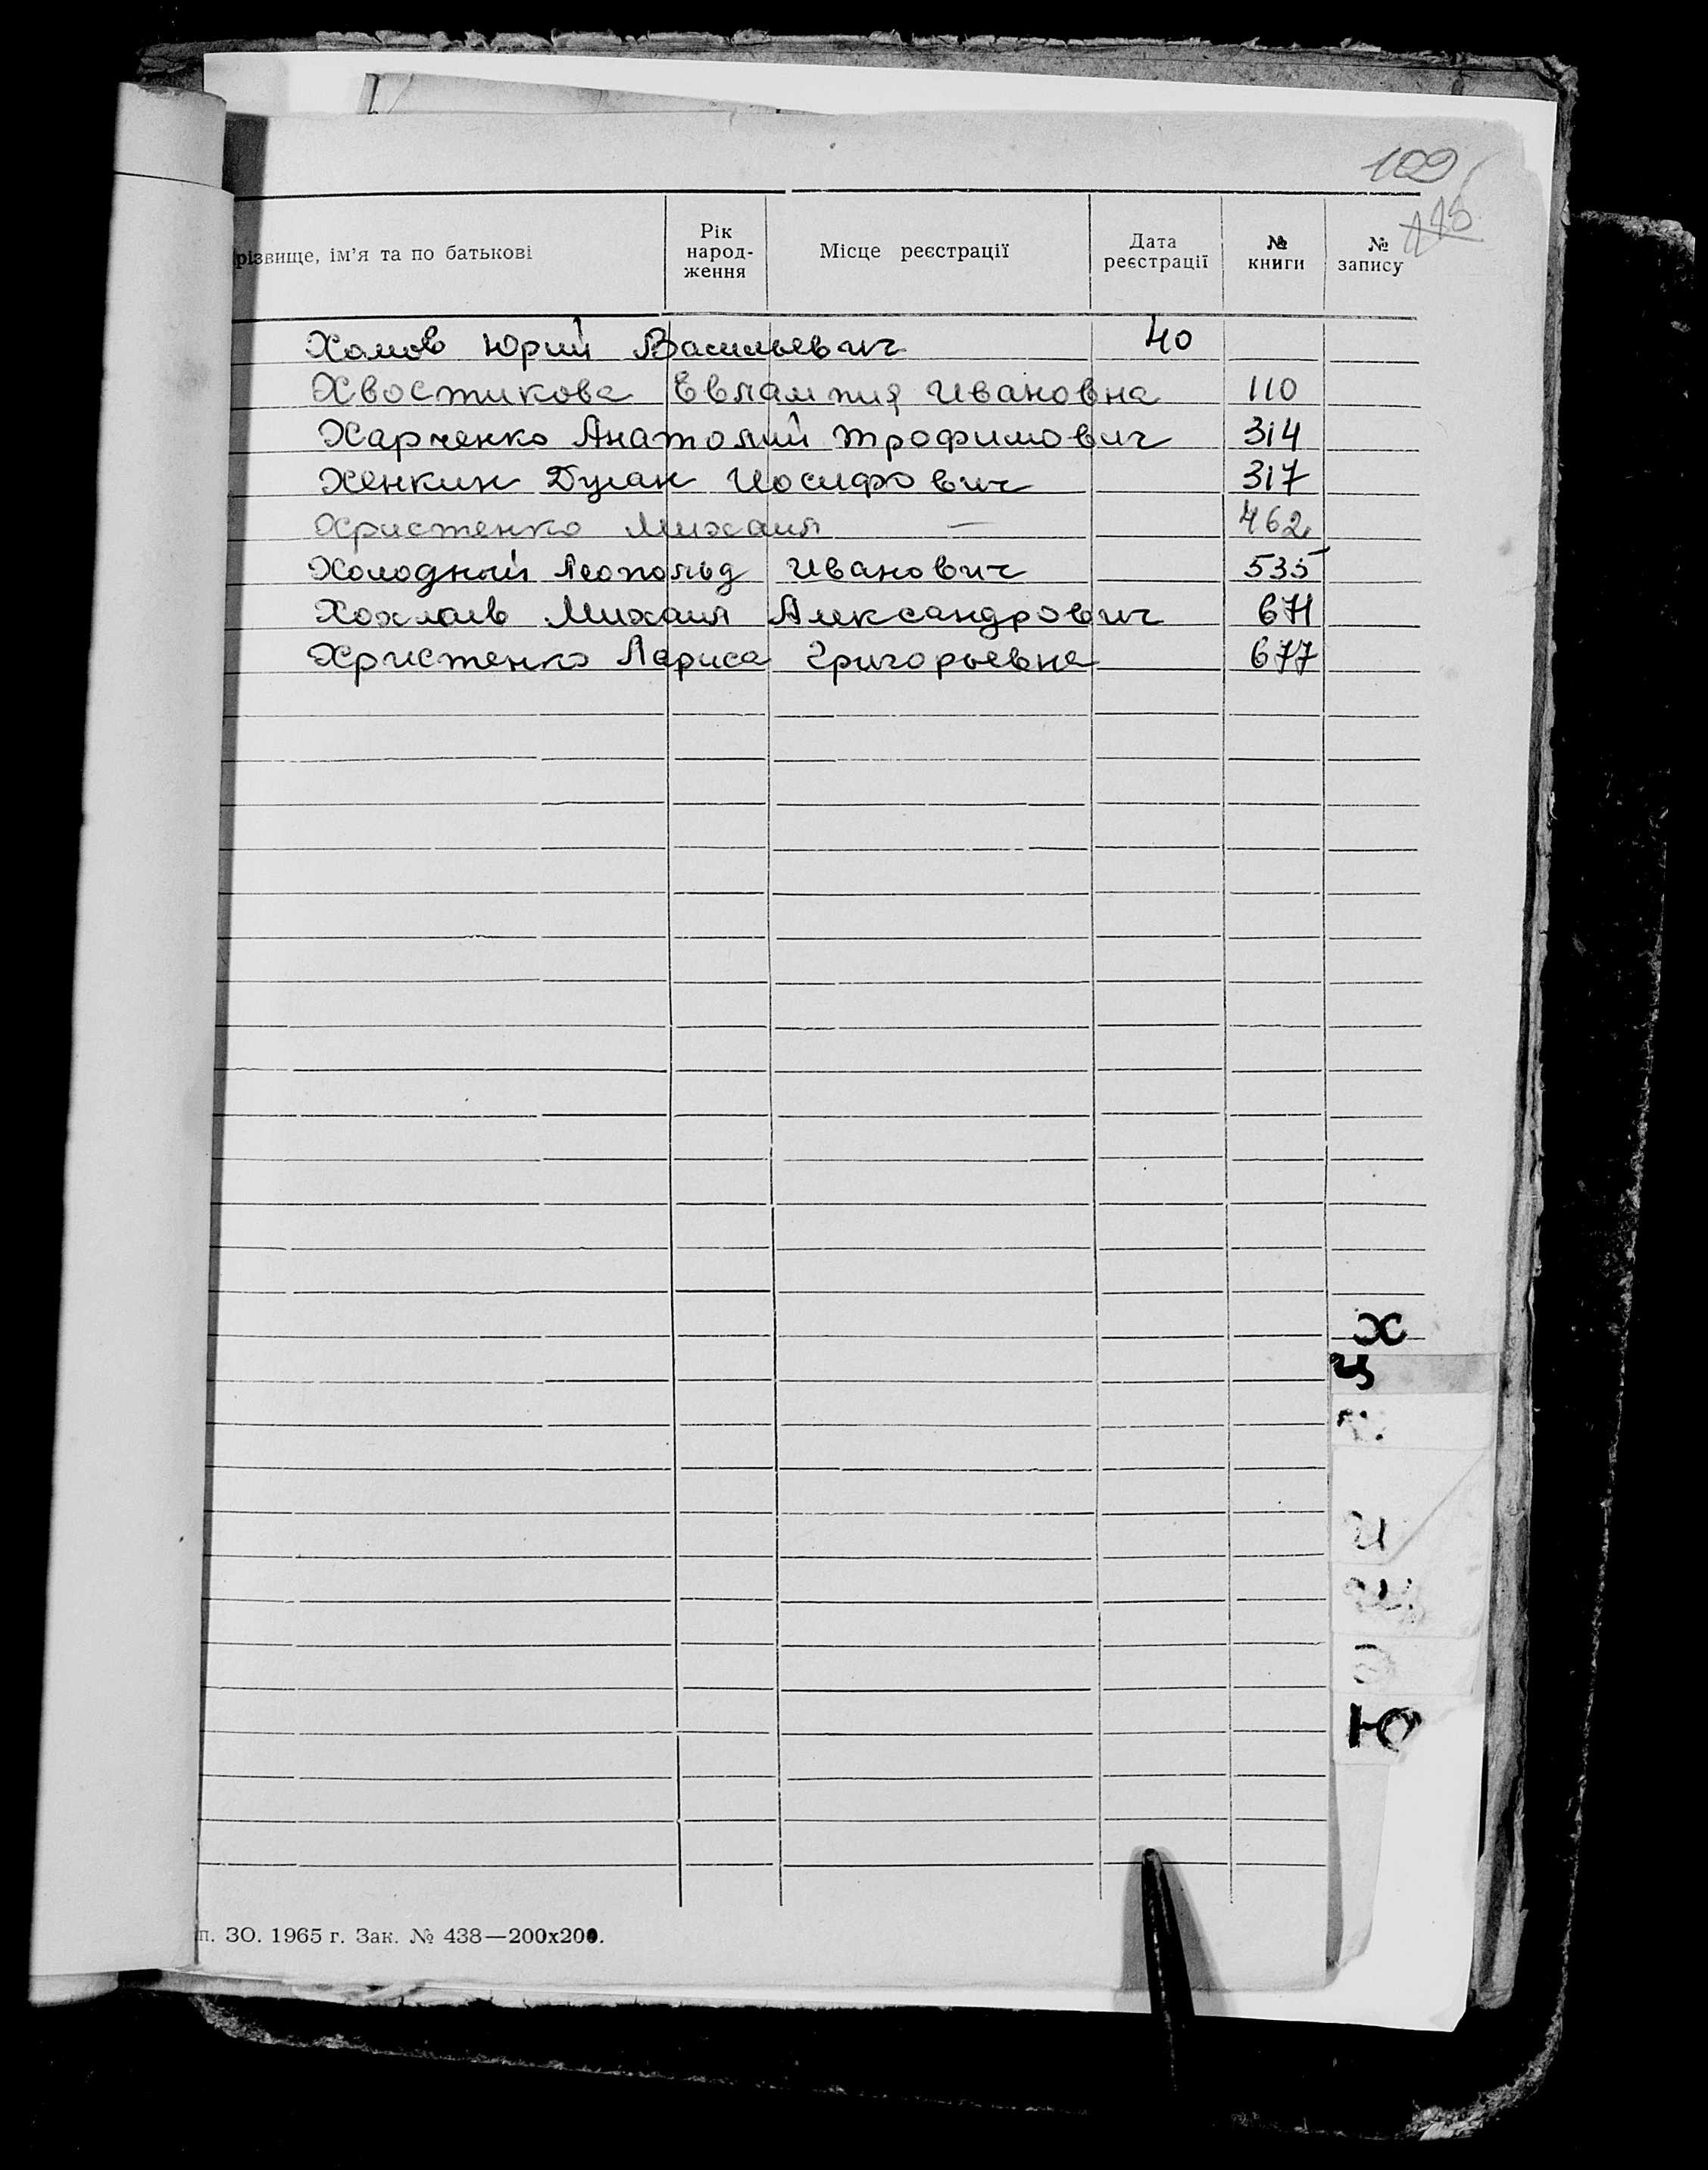 102
115
різвище, ім'я та по батькові
Рік народ-ження
Місце реєстрації
Дата реєстрації
№ книги
№ запису
Хомов Юрий Васильевич 40
Хвостикова Евлампия Ивановна 110
Харченко Анатолий Трофимович 314
Хенкин Дулан Иосифович 317
Христенко Михаил — 462
Холодный Леопольд Иванович 535
Михаил Александрович 671
Христенко Лариса Григорьевна 677
Х
Ц
Ю
п. ЗО. 1965 г. Зак. № 438—200х200.